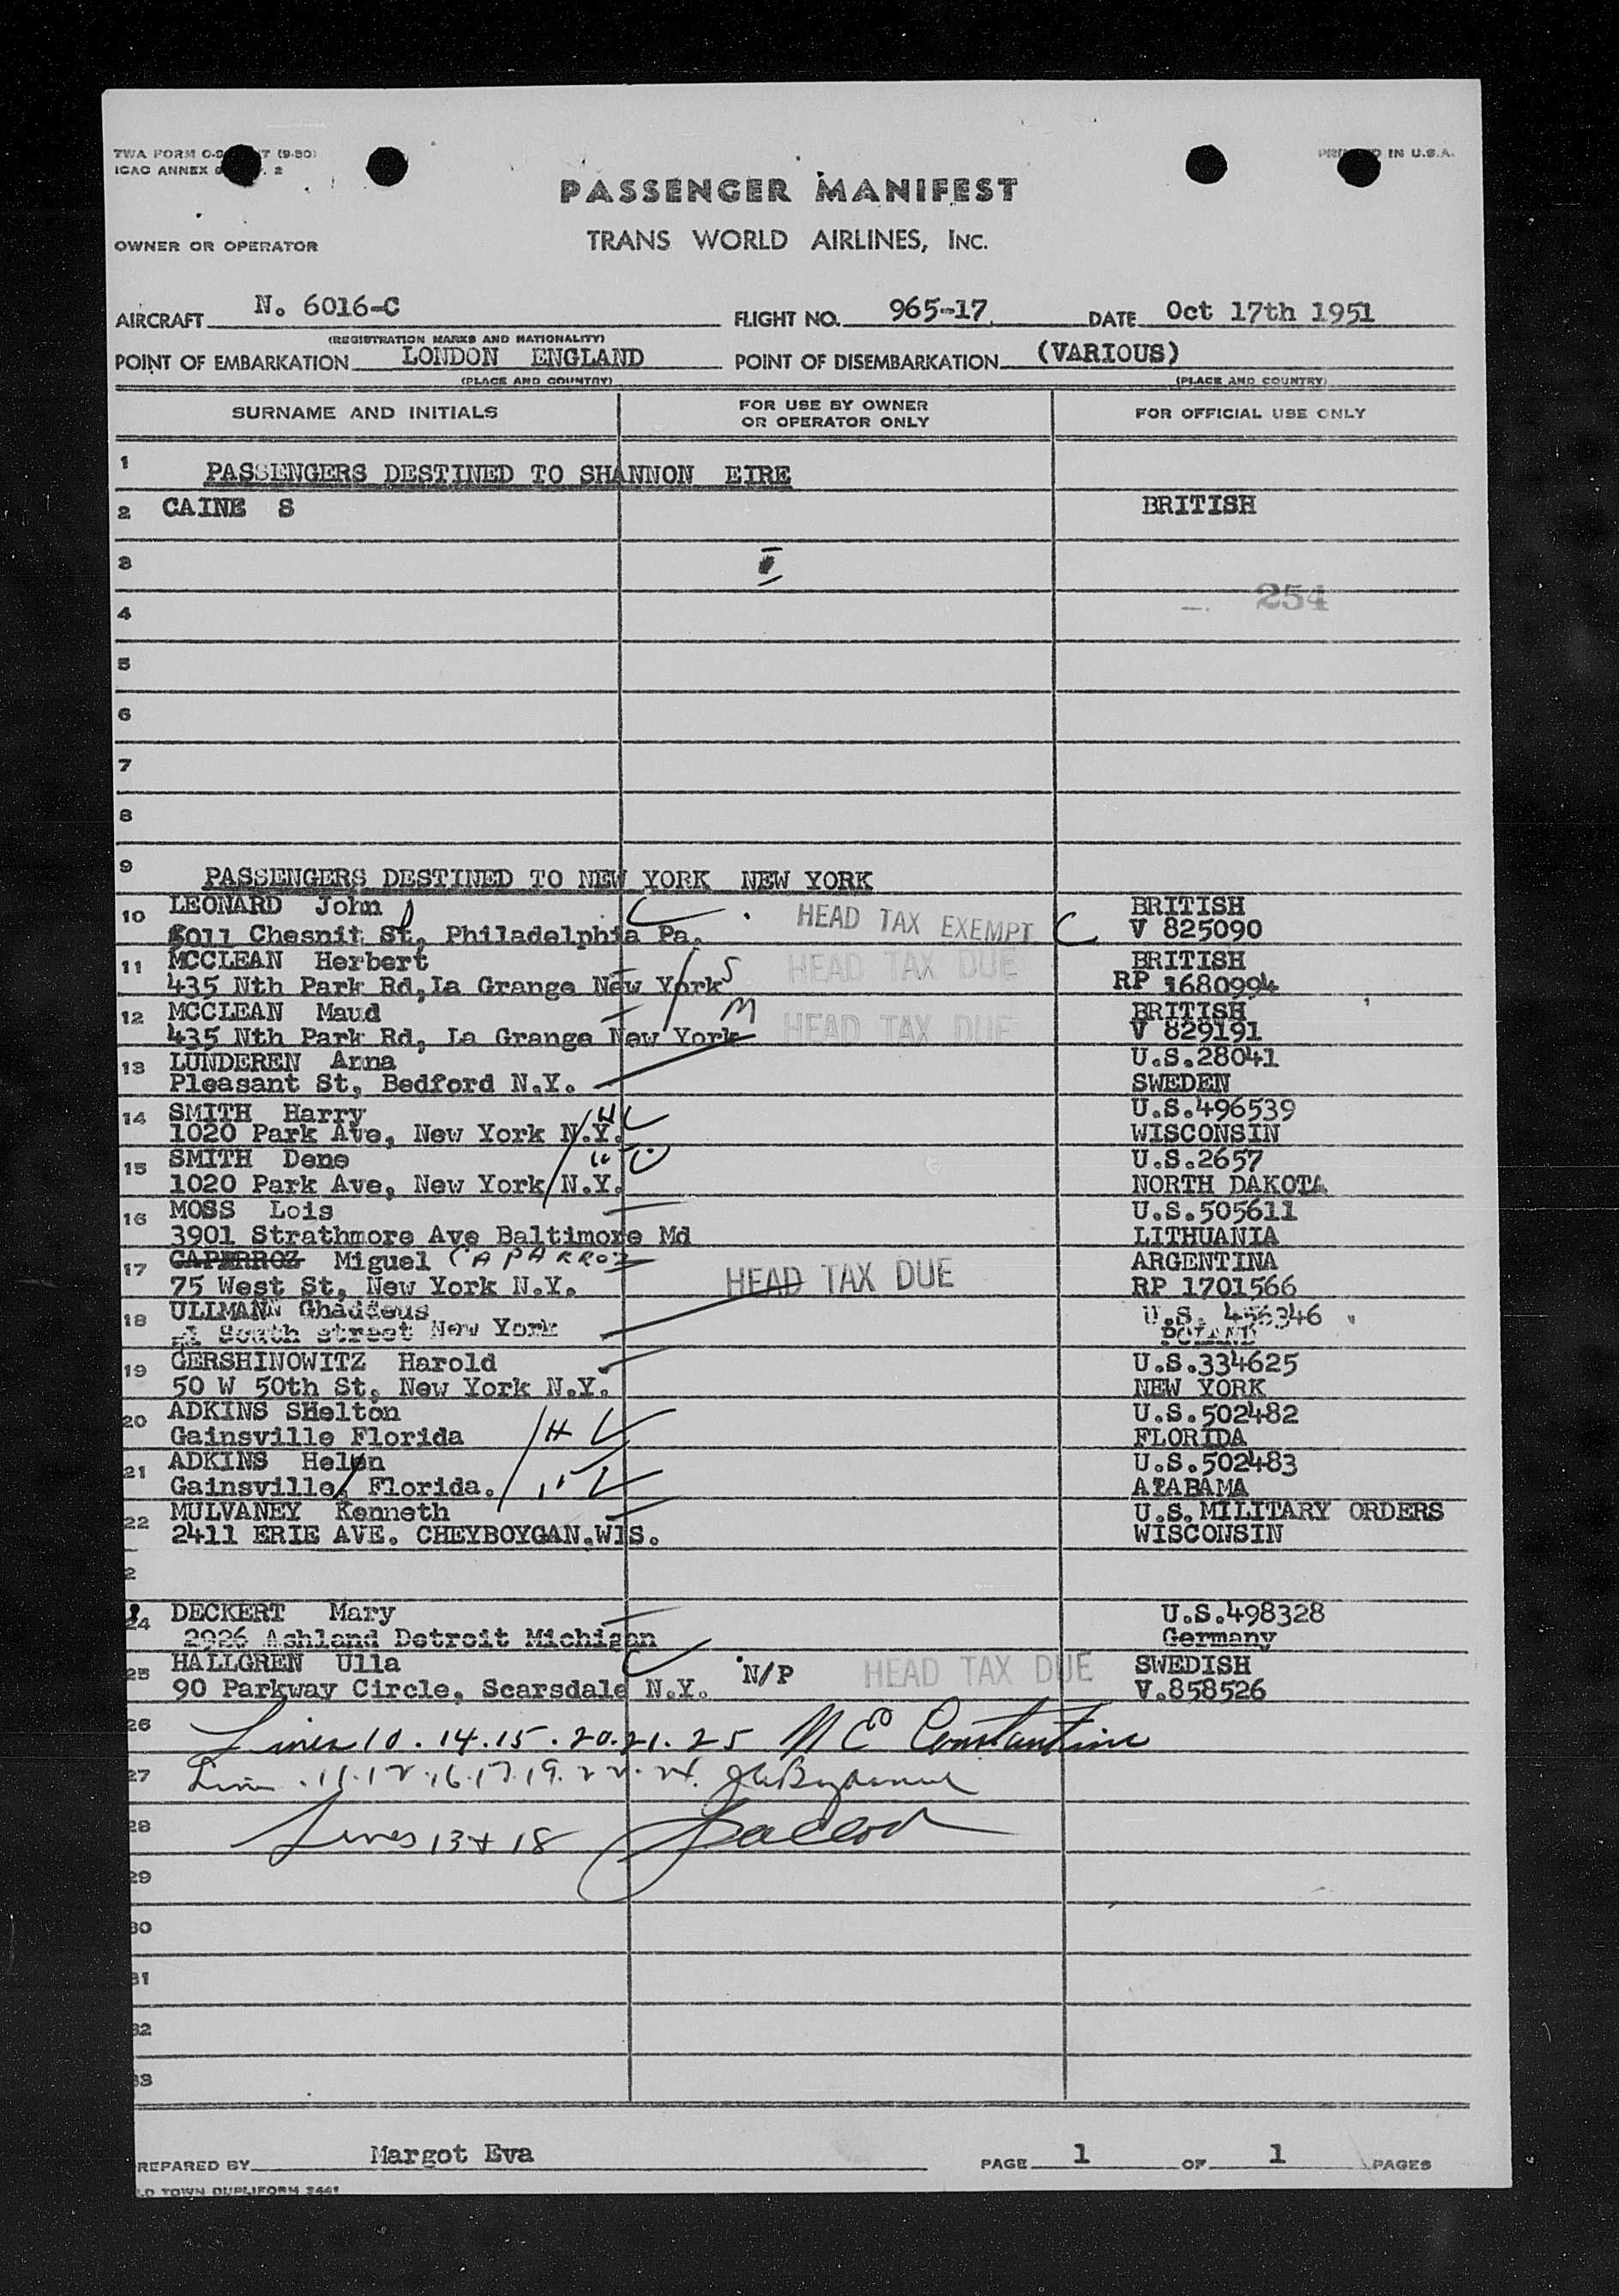 TWA FORM (9-50)
ICAO ANNEX 2
PRINTED IN U.S.A.
PASSENGER MANIFEST
OWNER OR OPERATOR TRANS WORLD AIRLINES, INC.
AIRCRAFT N. 6016-C FLIGHT NO. 965-17 DATE Oct 17th 1951
(REGISTRATION MARKS AND NATIONALITY)
POINT OF EMBARKATION LONDON ENGLAND POINT OF DISEMBARKATION (VARIOUS)
(PLACE AND COUNTRY) (PLACE AND COUNTRY)
SURNAME AND INITIALS FOR USE BY OWNER OR OPERATOR ONLY FOR OFFICIAL USE ONLY
1 PASSENGERS DESTINED TO SHANNON EIRE
2 CAINE S BRITISH
3
254
4
5
6
7
8
9 PASSENGERS DESTINED TO NEW YORK NEW YORK
10 LEONARD John HEAD TAX EXEMPT C BRITISH
5011 Chesnit St, Philadelphia Pa. V 825090
11 MCCLEAN Herbert S HEAD TAX DUE BRITISH
435 Nth Park Rd, La Grange New York RP 1680994
12 MCCLEAN Maud M HEAD TAX DUE BRITISH
435 Nth Park Rd, La Grange New York V 829191
13 LUNDEREN Anna U.S.28041
Pleasant St, Bedford N.Y. SWEDEN
14 SMITH Harry H U.S.496539
1020 Park Ave, New York N.Y. WISCONSIN
15 SMITH Dene U.S.2657
1020 Park Ave, New York N.Y. NORTH DAKOTA
16 MOSS Lois U.S.505611
3901 Strathmore Ave Baltimore Md LITHUANIA
17 CAPERROZ Miguel CAPARROZ HEAD TAX DUE ARGENTINA
75 West St, New York N.Y. RP 1701566
18 ULLMANN Ghaddeus U.S. 456346
South street New York POLAND
19 GERSHINOWITZ Harold U.S.334625
50 W 50th St, New York N.Y. NEW YORK
20 ADKINS SHelton H U.S.502482
Gainsville Florida FLORIDA
21 ADKINS Helen U.S.502483
Gainsville, Florida. ALABAMA
22 MULVANEY Kenneth U.S.MILITARY ORDERS
2411 ERIE AVE. CHEYBOYGAN.WIS. WISCONSIN
2
24 DECKERT Mary U.S.498328
2926 Ashland Detroit Michigan Germany
25 HALLGREN Ulla N/P HEAD TAX DUE SWEDISH
90 Parkway Circle, Scarsdale N.Y. V.858526
26 Lines 10. 14. 15. 20. 21. 25 N E Constantine
27 Lin . 11. 12. 16. 17. 19. 22. 24.
28 Lines 13 + 18
29
30
31
32
33
REPARED BY Margot Eva PAGE 1 OF 1 PAGES
LD TOWN DUPLIFORM 2441